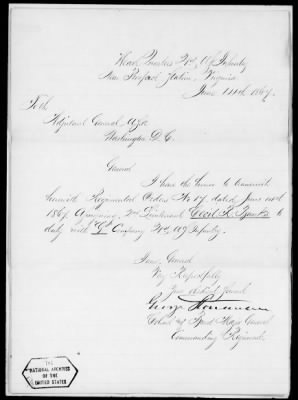 Head Quarters Regt, US Infantry
Near Station, Virginia
June 14th 1867.
To the
Adjutant General U.S.A.
Washington D.C.
General
I have the honor to transmit
herewith Regimental Orders No 57, dated June
1867 Assigning, 2nd Lieutenant Cecil R.
duty with "G" Company US Infantry.
I am, General
Very Respectfully
Your obedient servant
George
Colonel & Brevet Major General
Commanding Regiment
THE
NATIONAL ARCHIVES
OF THE
UNITED STATES